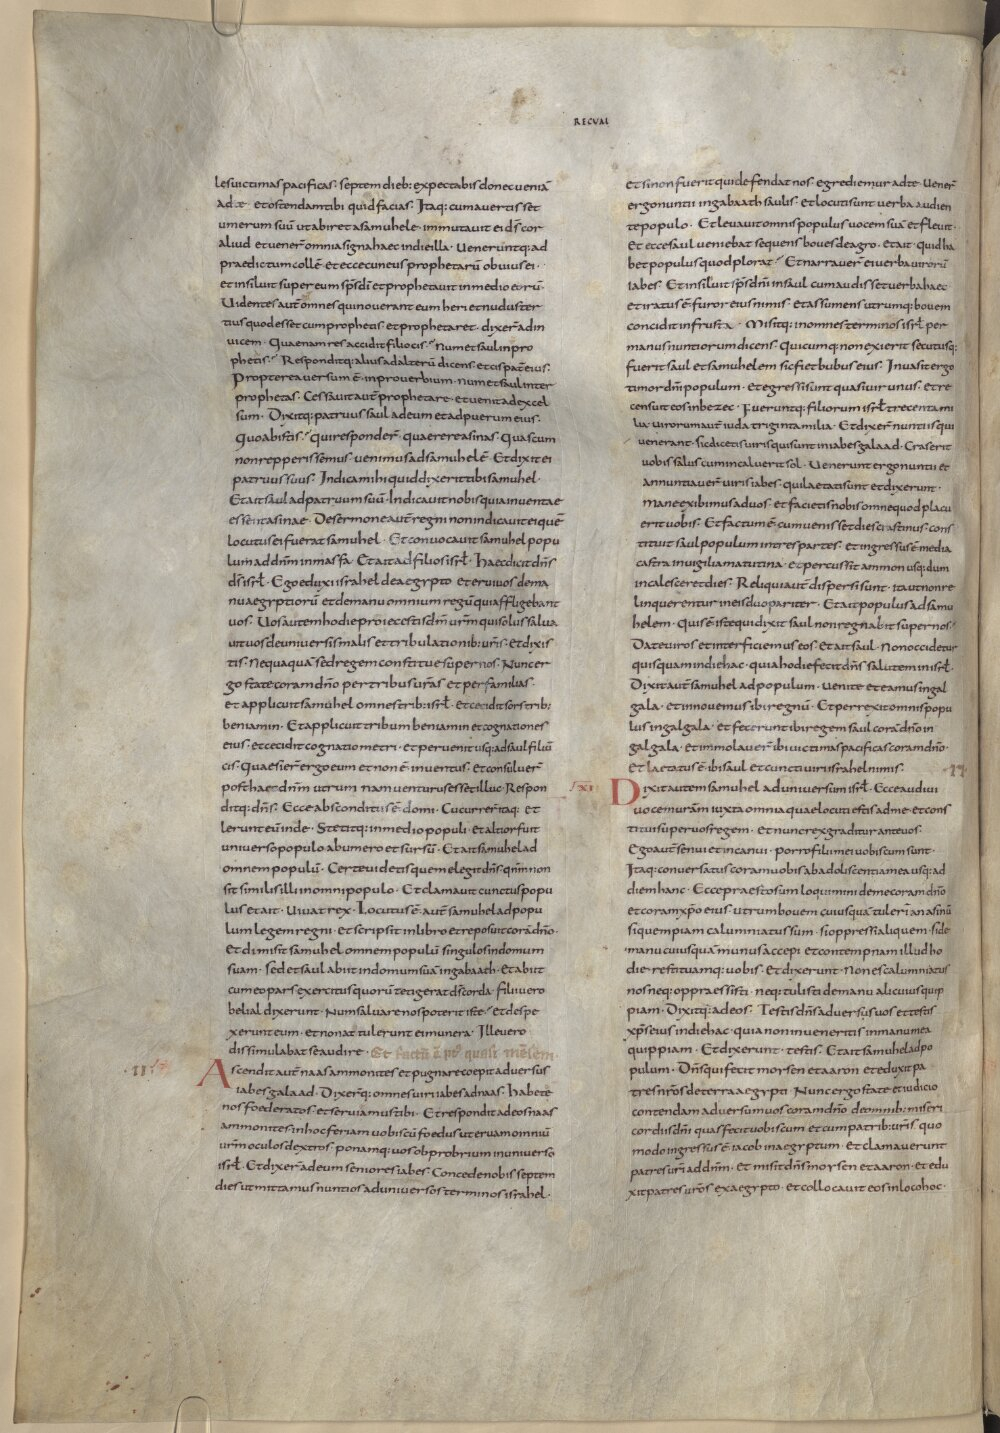 REGUM
les uictimas pacificas· septem dieb: expectabis donec ueniā
ad te et ostendam tibi quid facias· Itaq: cum auertisset
umerum suū ut abiret a samuhele· inmutauit ei ds̄ cor
aliud et uener̄ omnia signa haec in die illa· Ueneruntq: ad
praedictum collē· et ecce cuneus prophetarū obuius ei·
et insiluit super eum sps̄ dī et prophetauit in medio eorū·
Uidentes aut̄ omnes qui nouerant eum heri et nudiuster
tius quod esset cum prophetis et prophetaret· dixer̄ ad in
uicem· Quaenam res accidit filio cis· Num et saul in pro
phetis· Responditq: alius ad alterū dicens· et cis pater eius·
Propterea uersum ē in prouerbium· num et saul inter
prophetas· Cessauit aut̄ prophetare· et uenit ad excel
sum· Dixitq: patruus saul ad eum et ad puerum eius·
Quo abistis· qui responder̄· quaerere asinas· Quas cum
non repperissemus uenimus ad samuhelē· Et dixit ei
patruus suus· Indica mihi quid dixerit tibi samuhel·
Et ait saul ad patruum suū· Indicauit nobis quia inuentae
essent asinae· De sermone aut̄ regni non indicauit ei quē
locutus ei fuerat samuhel· Et conuocauit samuhel popu
lum ad dnm̄ in masfa· Et ait ad filios isrl̄· Haec dicit dn̄s
ds̄ isrl̄· Ego eduxi israhel de aegypto et erui uos de ma
nu aegyptiorū et de manu omnium regū qui affligebant
uos· Uos autem hodie proiecistis dm̄ urm̄ qui solus salua
uit uos de uniuersis malis et tribulationib: uris̄· et dixis
tis· nequaquā sed regem constitue super nos· Nunc er
go state coram dn̄o per tribus uras̄ et per familias·
et applicuit samuhel omnes trib: isrl̄· et cecidit sors trib:
beniamin· Et applicuit tribum beniamin et cognationes
eius· et cecidit cognatio metri· et peruenit usq: ad saul filiū
cis· Quaesier̄ ergo eum et non ē inuentus· et consuluer̄
post haec dnm̄ utrum nam uenturus esset illuc· Respon
ditq: dn̄s· Ecce absconditus ē domi· Cucurrer̄ itaq: et
lerunt eū inde· Stetitq: in medio populi· et altior fuit
uniuerso populo ab umero et sursū· Et ait samuhel ad
omnem populū· Certe uidetis quem elegit dn̄s· qnm̄ non
sit similis illi in omni populo· Et clamauit cunctus popu
lus et ait· Uiuat rex· Locutus ē aut̄ samuhel ad popu
lum legem regni· et scripsit in libro et reposuit corā dn̄o·
Et dimisit samuhel omnem populū singulos in domum
suam· sed et saul abiit in domum suā in gabaath· et abiit
cum eo pars exercitus quorū tetigerat ds̄ corda· filii uero
belial dixerunt· Num saluare nos poterit iste· et despe
xerunt eum· et non attulerunt ei munera· Ille uero
dissimulabat se audire· Et factū ē pꝰ quasi mēsem·
II
Ascendit aut̄ naas ammonites et pugnare coepit aduersus
iabes galaad· Dixer̄q: omnes uiri iabes ad naas· Habeto
nos foederatos et seruiamus tibi· Et respondit ad eos naas
ammonites in hoc feriam uobiscū foedus ut eruam omniū
urm̄ oculos dextros· ponamq: uos obprobrium in uniuerso
isrl̄· Et dixer̄ ad eum seniores iabes· Concede nobis septem
dies ut mittamus nuntios ad uniuersos terminos israhel·
et si non fuerit qui defendat nos· egrediemur ad te· Uener̄
ergo nuntii in gabaath saulis· et locuti sunt uerba audien
te populo· Et leuauit omnis populus uocem suā et fleuit·
Et ecce saul ueniebat sequens boues de agro· et ait· quid ha
bet populus quod plorat· Et narrauer̄ ei uerba uirorū
iabes· Et insiluit sps̄ dnī in saul cum audisset uerba haec
et iratus ē furor eius nimis· et assumens utrumq: bouem
concidit in frusta· Misitq: in omnes terminos isrl̄ per
manus nuntiorum dicens· Quicumq: non exierit secutusq:
fuerit saul et samuhelem sic fiet bubus eius· Inuasit ergo
timor dnī populum· et egressi sunt quasi uir unus· et re
censuit eos in bezec· Fueruntq: filiorum isrl̄ trecenta mi
lia· uirorum aut̄ iuda triginta milia· Et dixer̄ nuntiis qui
uenerant· sic dicetis uiris qui sunt in iabes galaad· Cras erit
uobis salus cum incaluerit sol· Uenerunt ergo nuntii et
annuntiauer̄ uiris iabes· qui laetati sunt et dixerunt·
Mane exibimus ad uos· et facietis nobis omne quod placu
erit uobis· Et factum ē cum uenisset dies crastinus· cons
tituit saul populum in tres partes· et ingressus ē media
castra in uigilia matutina· et percussit ammon usq: dum
incalesceret dies· Reliqui aut̄ dispersi sunt· ita ut non re
linquerentur in eis duo pariter· Et ait populus ad samu
helem· Quis ē iste qui dixit saul non regnabit super nos·
Date uiros et interficiemus eos· Et ait saul· Non occidetur
quisquam in die hac· quia hodie fecit dn̄s salutem in isrl̄·
Dixit aut̄ samuhel ad populum· uenite et eamus in gal
gala· et innouemus ibi regnū· Et perrexit omnis popu
lus in galgala· et fecerunt ibi regem saul corā dn̄o in
galgala· et immolauer̄ ibi uictimas pacificas coram dn̄o·
et laetatus ē ibi saul et cuncti uiri israhel nimis·
XI
Dixit autem samuhel ad uniuersum isrl̄· Ecce audiui
uocem uram̄ iuxta omnia quae locuti estis ad me· et cons
titui super uos regem· Et nunc rex graditur ante uos·
Ego aut̄ senui et incanui· porro filii mei uobiscum sunt·
Itaq: conuersatus coram uobis ab adoliscentia mea usq: ad
diem hanc· Ecce praesto sum loquimini de me coram dn̄o
et coram xp̄o eius· utrum bouem cuiusquā tulerī an asinū
si quempiam calumniatus sum· si oppressi aliquem· si de
manu cuiusquā munus accepi et contempnam illud ho
die· restituamq: uobis· Et dixerunt· Non es calumniatus
nos neq: oppraessisti· neq: tulisti de manu alicuius quip
piam· Dixitq: ad eos· Testis dn̄s aduersus uos et testis
xp̄s eius in die hac· quia non inueneritis in manu mea
quippiam· Et dixerunt· testis· Et ait samuhel ad po
pulum· Dn̄s qui fecit moysen et aaron· et eduxit pa
tres nros̄ de terra aegypti· Nunc ergo state et iudicio
contendam aduersum uos coram dn̄o de omnib: miseri
cordiis dnī quas fecit uobiscum et cum patrib: uris̄ quo
modo ingressus ē iacob in aegyptum· et clamauerunt
patres uri ad dnm̄· et misit dn̄s moysen et aaron· et edu
xit patres uros̄ ex aegypto· et collocauit eos in loco hoc·